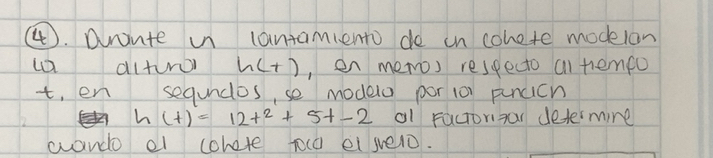 ④. Durante un lantamiento de un cohete modelan
la altura h(t), en metros respecto al tiempo
t, en segundos, se modela por la función
h(t) = 12t² + 5t - 2 al Factorizar determine
cuando el cohete toca el suelo.